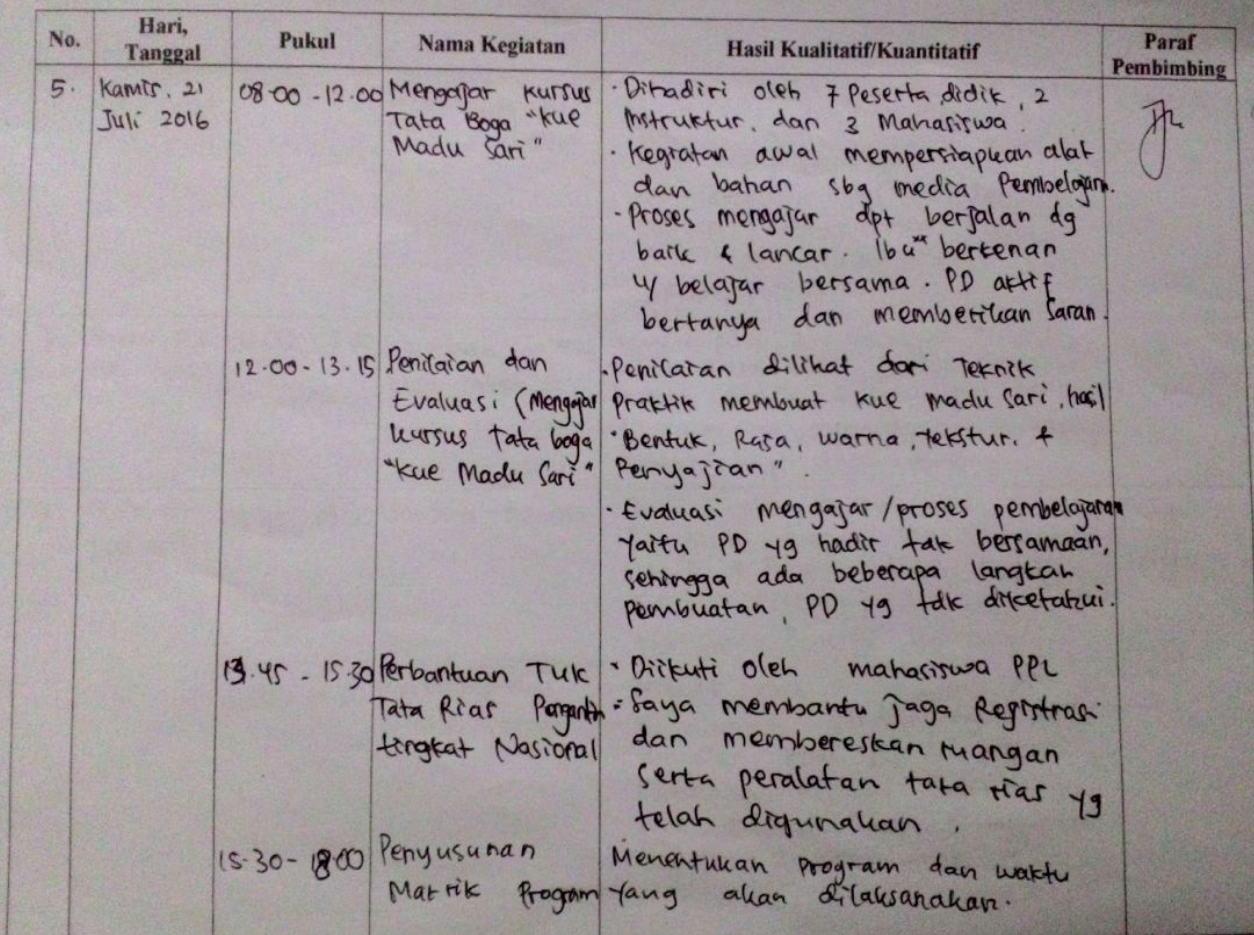 No. Hari, Tanggal Pukul Nama Kegiatan Hasil Kualitatif/Kuantitatif Paraf Pembimbing
5. Kamis, 21 Juli 2016
08.00 - 12.00
Mengajar kursus
Tata Boga "kue
Madu Sari"
· Dihadiri oleh 7 Peserta didik, 2
Instruktur, dan 3 Mahasiswa.
· Kegiatan awal mempersiapkan alat
dan bahan sbg media Pembelajarn.
· Proses mengajar dpt berjalan dg
baik & lancar. Ibu" berkenan
u/ belajar bersama. PD aktif
bertanya dan memberikan saran.
12.00 - 13.15
Penilaian dan
Evaluasi (mengajar
kursus tata boga
"kue Madu Sari"
· Penilaian dilihat dari Teknik
Praktik membuat kue madu sari, hasil
"Bentuk, Rasa, warna, tekstur, &
Penyajian".
· Evaluasi mengajar/proses pembelajaran
yaitu PD yg hadir tak bersamaan,
sehingga ada beberapa langkah
pembuatan, PD yg tdk diketahui.
13.45 - 15.30
Perbantuan TUK
Tata Rias Pengantin
tingkat Nasional
· Diikuti oleh mahasiswa PPL
· Saya membantu jaga Registrasi
dan membereskan ruangan
serta peralatan tata rias yg
telah digunakan,
15.30 - 18.00
Penyusunan
Matrik Program
Menentukan program dan waktu
yang akan dilaksanakan.